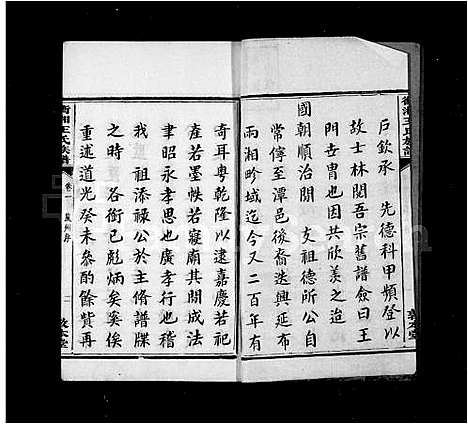 戶欽承 先德科甲頻登以
故士林閱吾宗舊譜僉曰王
門世冑也因共欣羨之迨
國朝順治間 支祖德所公自
常傳至潭邑後裔迭興延布
兩湘畛域迄今又二百年有
奇耳粵乾隆以逮嘉慶若祀
產若墨帙若寢廟其間成法
聿昭永孝思也廣孝行也稽
我 祖添祿公於主脩譜牒
之時各銜已彪炳矣奚俟
重述道光癸未叅酌餘貲再
衡湘王氏族譜
卷一
二
敦本堂